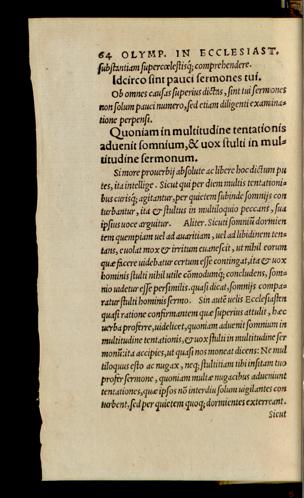 64 OLYMP. IN ECCLESIAST.
substantiam supercœlestisq; comprehendere.
Idcirco sint pauci sermones tui.
Ob omnes causas superius dictas, sint tui sermones
non solum pauci numero, sed etiam diligenti examina-
tione perpensi.
Quoniam in multitudine tentationis
aduenit somnium, & uox stulti in mul-
titudine sermonum.
Si more prouerbij absolute ac libere hoc dictum pu
tes, ita intellige. Sicut qui per diem multis tentationi-
bus curisq; agitantur, per quietem subinde somnijs con
turbantur, ita & stultus in multiloquio peccans, sua
ipsius uoce arguitur. Aliter. Sicuti somniū dormien
tem quempiam uel ad auaritiam, uel ad libidinem ten-
tans, euolat mox & irritum euanescit, ut nihil eorum
quæ facere uidebatur certum esse contingat, ita & uox
hominis stulti nihil utile cōmodumq; concludens, som-
nio uidetur esse persimilis. quasi dicat, somnijs compa-
ratur stulti hominis sermo. Sin autē uelis Ecclesiasten
quasi ratione confirmantem quæ superius attulit, hæc
uerba proferre, uidelicet, quoniam aduenit somnium in
multitudine tentationis, & uox stulti in multitudine ser
monū: ita accipies, ut quasi nos moneat dicens: Ne mul
tiloquus esto ac nugax, neq; stultitiam tibi insitam tuo
profer sermone, quoniam multæ nugacibus adueniunt
tentationes, quæ ipsos nō interdiu solum uigilantes con
turbent, sed per quietem quoq; dormientes exterreant.
Sicut